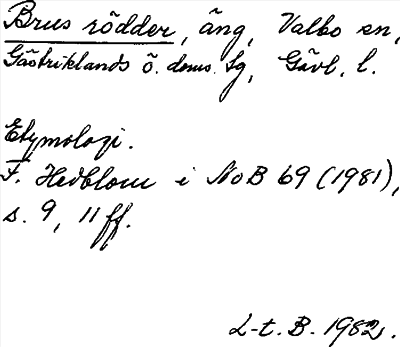 Brus rödder, äng, Valbo sn,
Gästriklands ö. doms. tg, Gävl. l.
Etymologi.
F. Hedblom i NoB 69 (1981),
s. 9, 11 ff.
L-t. B. 1982.